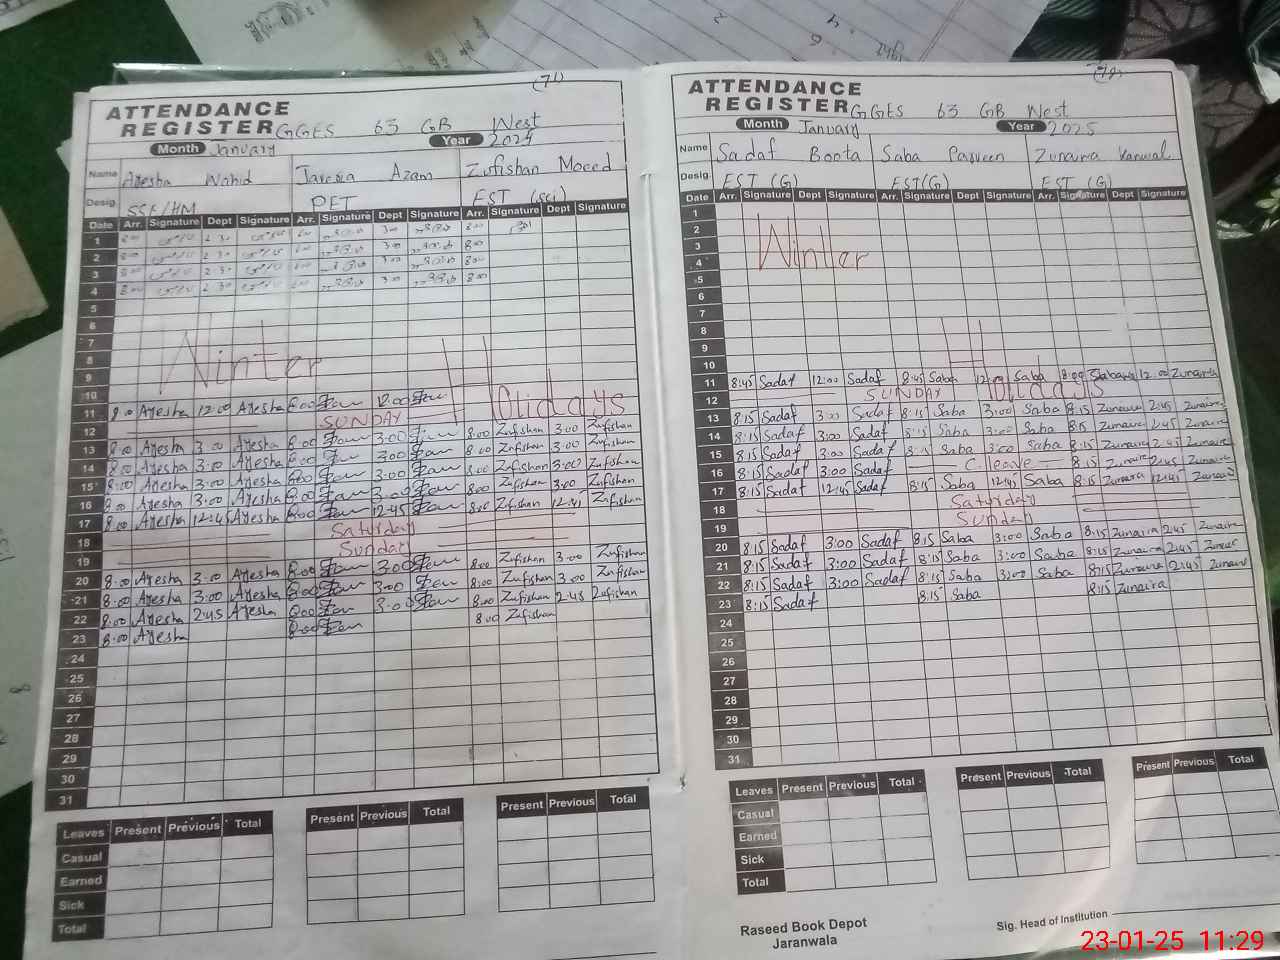 (71)
ATTENDANCE
REGISTER GGES 63 GB West
Month January Year 2025
Name Ayesha Wahid Javeria Azam Zufishan Moeed
Desig. SSE/HM PET EST (sci)
Date Arr. Signature Dept Signature Arr. Signature Dept Signature Arr. Signature Dept Signature
1 8:00 2:30 3:00 8:00
2 8:00 2:30 3:00 8:00
3 8:00 2:30 3:00 8:00
4 8:00 2:30 3:00 8:00
5
6
7
8 Winter H
9
10 Holidays
11 8:00 Ayesha 12:00 Ayesha 8:00 12:00
12 SUNDAY
13 8:00 Ayesha 3:00 Ayesha 8:00 3:00 8:00 Zufishan 3:00 Zufishan
14 8:00 Ayesha 3:00 Ayesha 8:00 3:00 8:00 Zufishan 3:00 Zufishan
15 8:00 Ayesha 3:00 Ayesha 8:00 3:00 8:00 Zufishan 3:00 Zufishan
16 8:00 Ayesha 3:00 Ayesha 8:00 3:00 8:00 Zufishan 3:00 Zufishan
17 8:00 Ayesha 12:45 Ayesha 8:00 12:45 8:00 Zufishan 12:45 Zufishan
18 Saturday
19 Sunday
20 8:00 Ayesha 3:00 Ayesha 8:00 3:00 8:00 Zufishan 3:00 Zufishan
21 8:00 Ayesha 3:00 Ayesha 8:00 3:00 8:00 Zufishan 3:00 Zufishan
22 8:00 Ayesha 2:45 Ayesha 8:00 3:00 8:00 Zufishan 2:45 Zufishan
23 8:00 Ayesha 8:00 8:00 Zufishan
24
25
26
27
28
29
30
31
Leaves Present Previous Total Present Previous Total Present Previous Total
Casual
Earned
Sick
Total
ATTENDANCE
REGISTER GGES 63 GB West
Month January Year 2025
Name Sadaf Boota Saba Parveen Zunaira Kanwal
Desig. EST (G) EST(G) EST (G)
Date Arr. Signature Dept Signature Arr. Signature Dept Signature Arr. Signature Dept Signature
1
2
3 Winter
4
5
6
7
8
9
10 Holidays
11 8:45 Sadaf 12:00 Sadaf 8:45 Saba 12:00 Saba 8:00 12:00 Zunaira
12 SUNDAY
13 8:15 Sadaf 3:00 Sadaf 8:15 Saba 3:00 Saba 8:15 Zunaira 2:45 Zunaira
14 8:15 Sadaf 3:00 Sadaf 8:15 Saba 3:00 Saba 8:15 Zunaira 2:45 Zunaira
15 8:15 Sadaf 3:00 Sadaf 8:15 Saba 3:00 Saba 8:15 Zunaira 2:45 Zunaira
16 8:15 Sadaf 3:00 Sadaf C. leave 8:15 Zunaira 2:45 Zunaira
17 8:15 Sadaf 12:45 Sadaf 8:15 Saba 12:45 Saba 8:15 Zunaira 12:45 Zunaira
18 Saturday
19 Sunday
20 8:15 Sadaf 3:00 Sadaf 8:15 Saba 3:00 Saba 8:15 Zunaira 2:45 Zunaira
21 8:15 Sadaf 3:00 Sadaf 8:15 Saba 3:00 Saba 8:15 Zunaira 2:45 Zunaira
22 8:15 Sadaf 3:00 Sadaf 8:15 Saba 3:00 Saba 8:15 Zunaira 2:45 Zunaira
23 8:15 Sadaf 8:15 Saba 8:15 Zunaira
24
25
26
27
28
29
30
31
Leaves Present Previous Total Present Previous Total Present Previous Total
Casual
Earned
Sick
Total
Raseed Book Depot
Jaranwala
Sig. Head of Institution
23-01-25 11:29